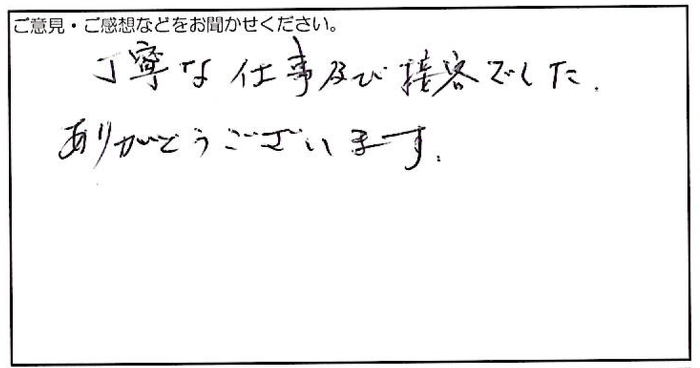 ご意見・ご感想などをお聞かせください。
丁寧な仕事及び接客でした.
ありがとうございます.